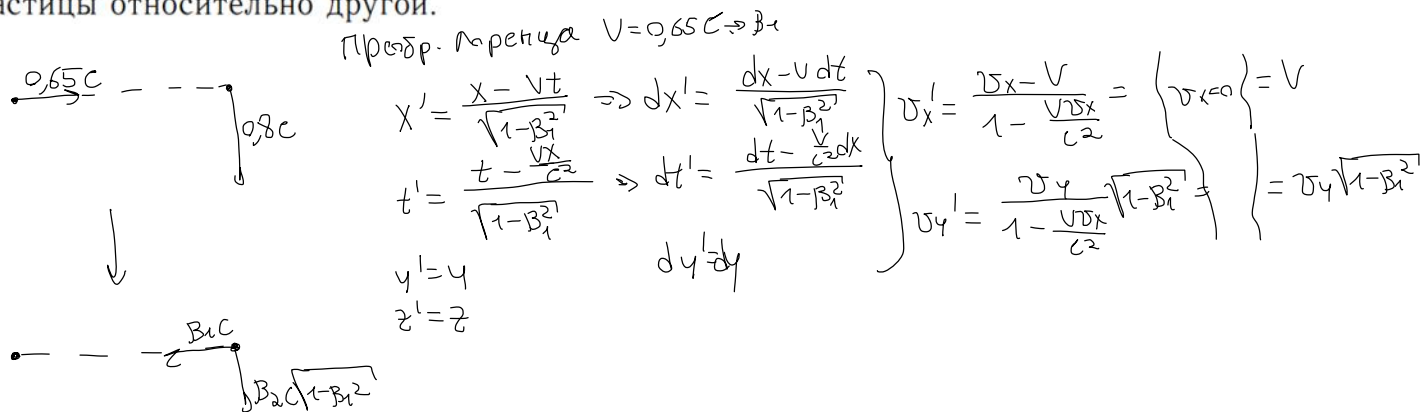 астицы относительно другой.
Преобр. Лоренца V=0,65C => B₁
0,65C
0,8C
x' = (x - Vt)/√(1-B₁²) => dx' = (dx - V dt)/√(1-B₁²)
t' = (t - Vx/c²)/√(1-B₁²) => dt' = (dt - V/c² dx)/√(1-B₁²)
y' = y
dy' = dy
z' = z
vx' = (vx - V)/(1 - Vvx/c²) = {vx=0} = V
vy' = vy/(1 - Vvx/c²) √(1-B₁²) = { } = vy√(1-B₁²)
B₁C
B₂C√(1-B₁²)